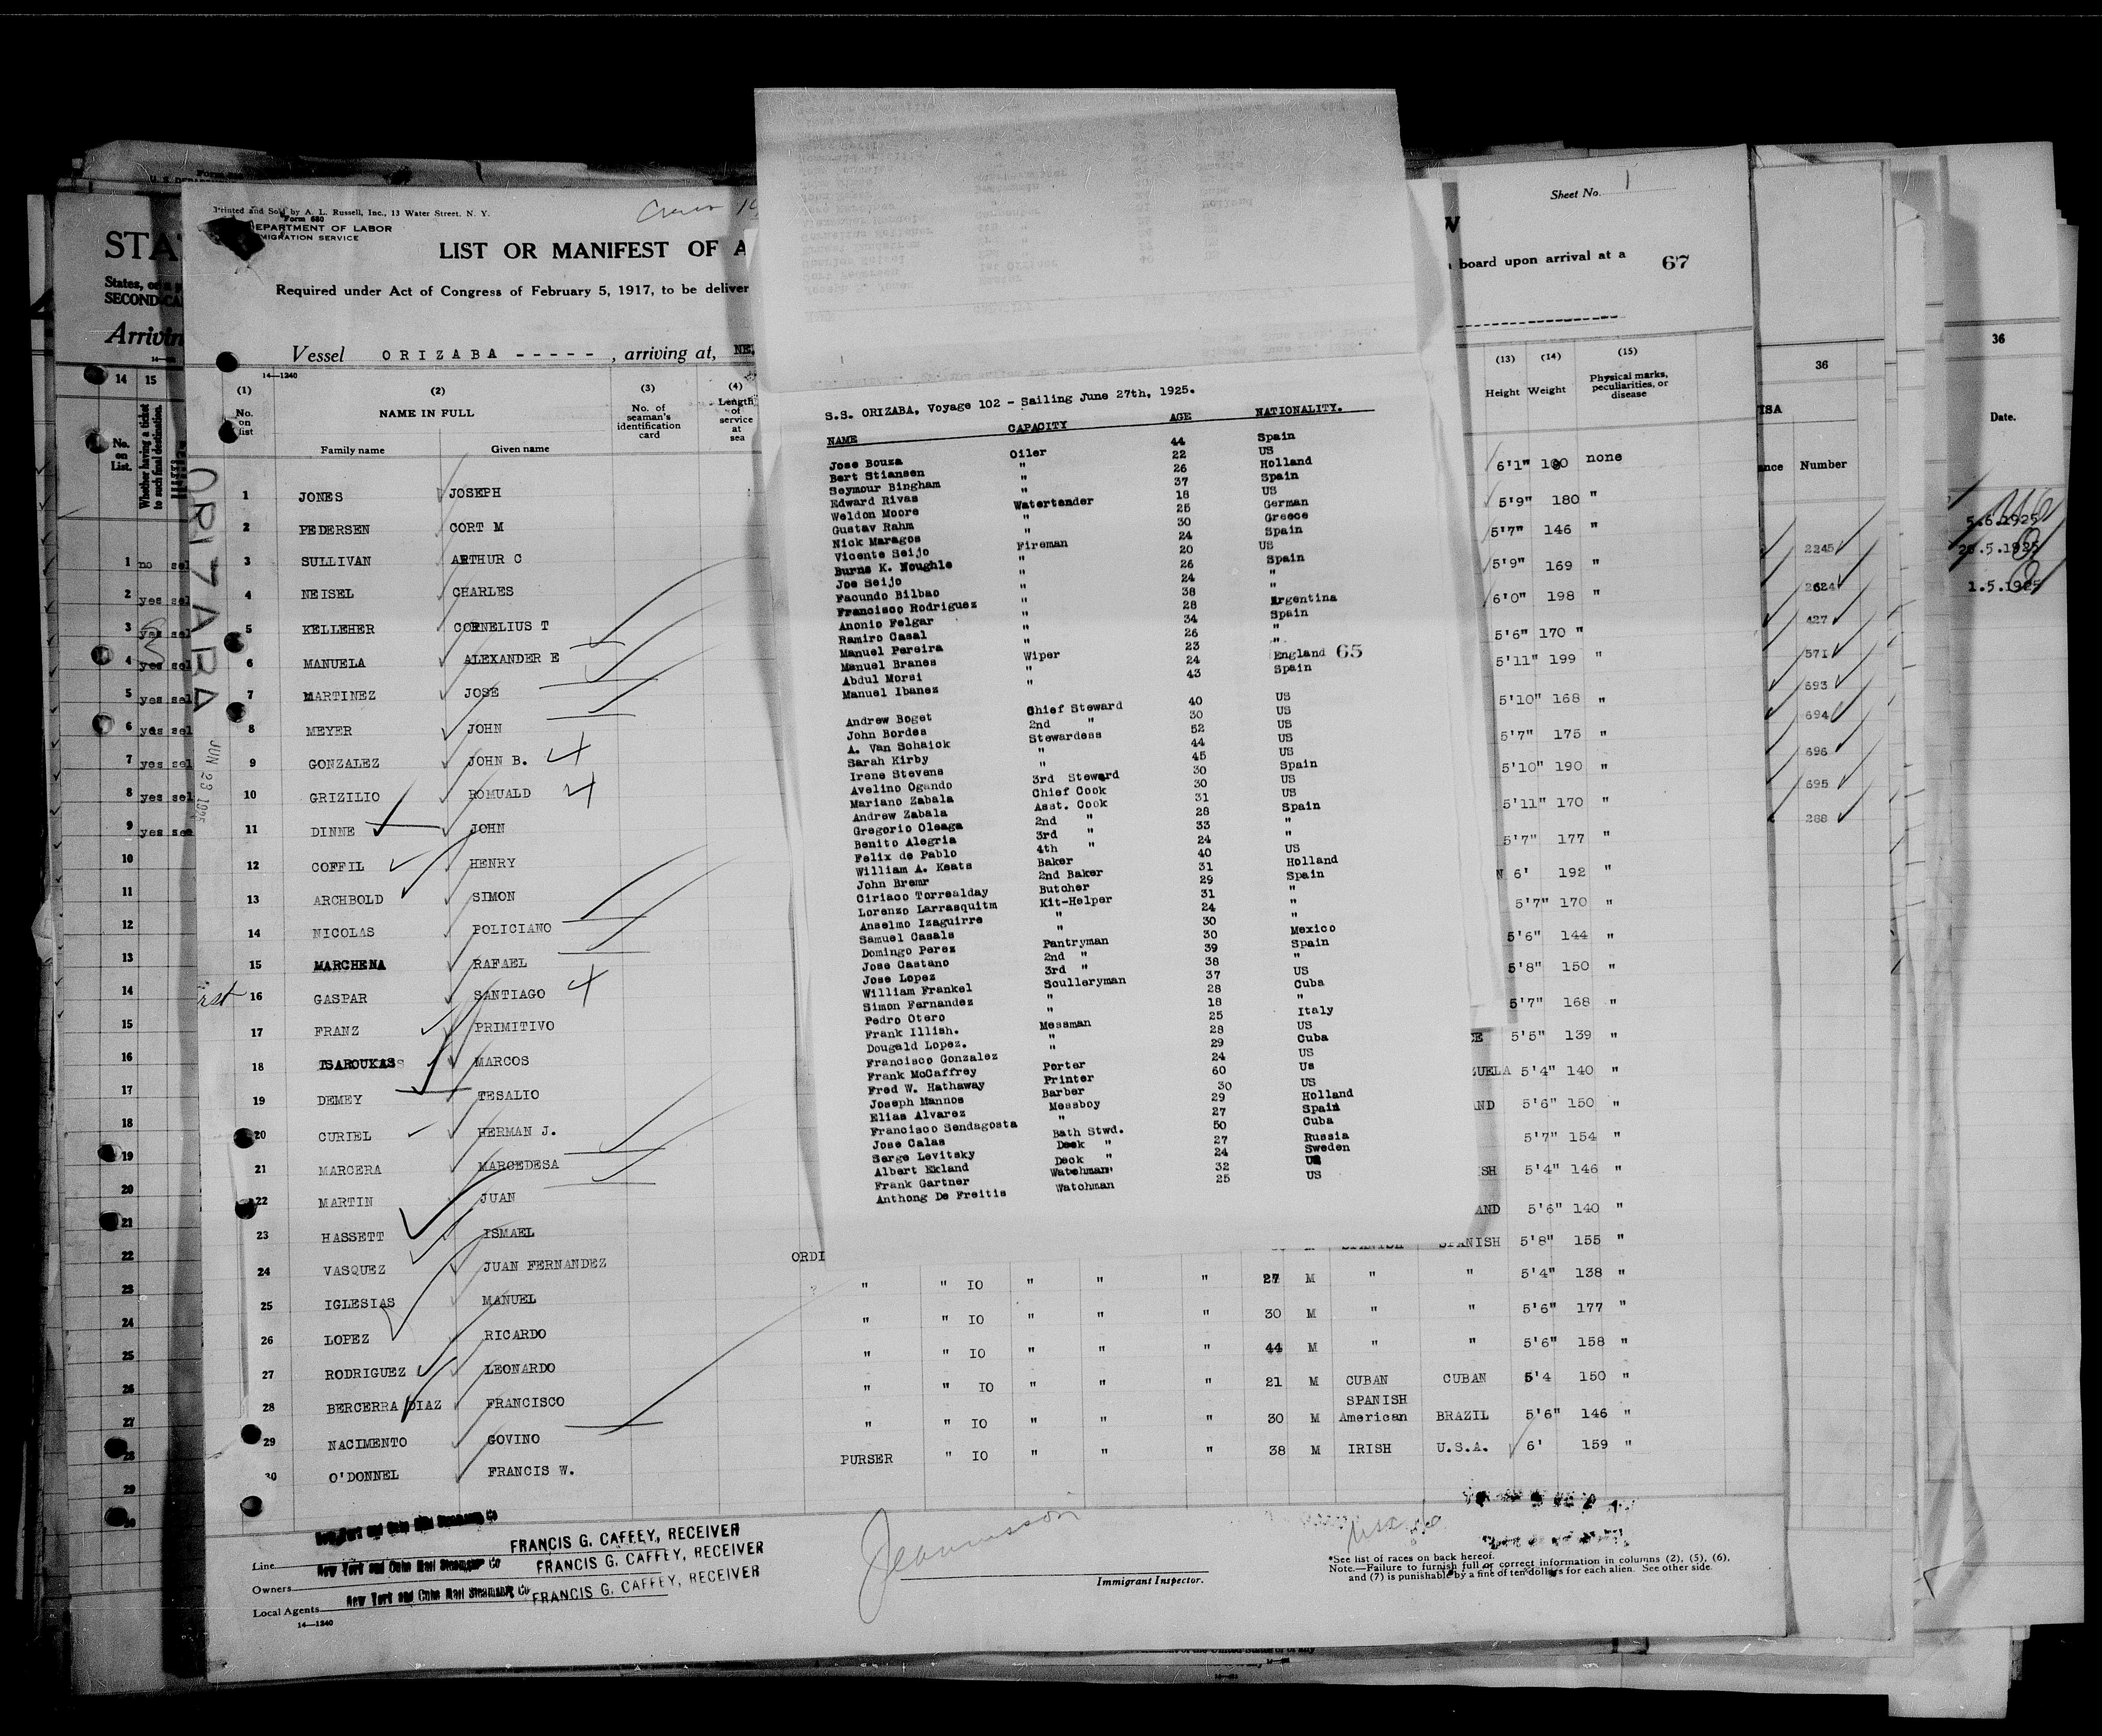 Printed and Sold by A. L. Russell, Inc., 13 Water Street, N. Y.
Form 680
DEPARTMENT OF LABOR
IMMIGRATION SERVICE
Sheet No. 1
LIST OR MANIFEST OF A
board upon arrival at a 67
Required under Act of Congress of February 5, 1917, to be deliver
Vessel ORIZABA - - - - - , arriving at,
14—1240
(1) (2) (3) (4) (13) (14) (15)
No. on list NAME IN FULL No. of seaman's identification card Length of service at sea Height Weight Physical marks, peculiarities, or disease
Family name Given name
1 JONES JOSEPH 6'1" none
2 PEDERSEN CORT M 5'9" 180 "
3 SULLIVAN ARTHUR C 5'7" 146 "
4 NEISEL CHARLES 5'9" 169 "
5 KELLEHER CORNELIUS T 6'0" 198 "
6 MANUELA ALEXANDER E 5'6" 170 "
7 MARTINEZ JOSE 5'11" 199 "
8 MEYER JOHN 5'10" 168 "
9 GONZALEZ JOHN B. 5'7" 175 "
10 GRIZILIO ROMUALD 5'10" 190 "
11 DINNE JOHN 5'11" 170 "
12 COFFIL HENRY 5'7" 177 "
13 ARCHBOLD SIMON N 6' 192 "
14 NICOLAS POLICIANO 5'7" 170 "
15 MARCHENA RAFAEL 5'6" 144 "
16 GASPAR SANTIAGO 5'8" 150 "
17 FRANZ PRIMITIVO 5'7" 168 "
18 TSAROUKAS MARCOS CE 5'5" 139 "
19 DEMEY TESALIO ZUELA 5'4" 140 "
20 CURIEL HERMAN J. AND 5'6" 150 "
21 MARCERA MARCEDESA 5'7" 154 "
22 MARTIN JUAN SH 5'4" 146 "
23 HASSETT ISMAEL AND 5'6" 140 "
24 VASQUEZ JUAN FERNANDEZ ORDI SPANISH SPANISH 5'8" 155 "
25 IGLESIAS MANUEL " " IO " " " 27 M " " 5'4" 138 "
26 LOPEZ RICARDO " " IO " " " 30 M " " 5'6" 177 "
27 RODRIGUEZ LEONARDO " " IO " " " 44 M " " 5'6" 158 "
28 BERCERRA DIAZ FRANCISCO " " IO " " " 21 M CUBAN CUBAN 5'4 150 "
29 NACIMENTO GOVINO " " IO " " " 30 M SPANISH American BRAZIL 5'6" 146 "
30 O'DONNEL FRANCIS W. PURSER " IO " " " 38 M IRISH U.S.A. 6' 159 "
Line New York and Cuba Mail Steamship Co FRANCIS G. CAFFEY, RECEIVER
Owners New York and Cuba Mail Steamship Co FRANCIS G. CAFFEY, RECEIVER
Local Agents New York and Cuba Mail Steamship Co FRANCIS G. CAFFEY, RECEIVER
14—1240
Immigrant Inspector.
*See list of races on back hereof.
Note.—Failure to furnish full or correct information in columns (2), (5), (6),
and (7) is punishable by a fine of ten dollars for each alien. See other side.
ORIZABA
JUN 23 1925
S.S. ORIZABA, Voyage 102 - Sailing June 27th, 1925.
NAME CAPACITY AGE NATIONALITY.
Jose Bouza Oiler 44 Spain
Bert Stiansen " 22 US
Seymour Bingham " 26 Holland
Edward Rivas " 37 Spain
Weldon Moore Watertender 18 US
Gustav Rahm " 25 German
Nick Maragos " 30 Greece
Vicente Seijo Fireman 24 Spain
Burns K. Noughle " 20 US
Joe Seijo " 26 Spain
Facundo Bilbao " 24 "
Francisco Rodriguez " 38 "
Anonio Felgar " 28 Argentina
Ramiro Casal " 34 Spain
Manuel Pereira " 26 "
Manuel Branes Wiper 23 "
Abdul Morsi " 24 England 65
Manuel Ibanez " 43 Spain
Andrew Boget Chief Steward 40 US
John Bordes 2nd " 30 US
A. Van Schaick Stewardess 52 US
Sarah Kirby " 44 US
Irene Stevens " 45 US
Avelino Ogando 3rd Steward 30 Spain
Mariano Zabala Chief Cook 30 US
Andrew Zabala Asst. Cook 31 US
Gregorio Oleaga 2nd " 28 Spain
Benito Alegria 3rd " 33 "
Felix de Pablo 4th " 24 "
William A. Keats Baker 40 US
John Bremr 2nd Baker 31 Holland
Ciriaco Torrealday Butcher 29 Spain
Lorenzo Larrasquitm Kit-Helper 31 "
Anselmo Izaguirre " 24 "
Samuel Casals " 30 "
Domingo Perez Pantryman 30 Mexico
Jose Castano 2nd " 39 Spain
Jose Lopez 3rd " 38 "
William Frankel Sculleryman 37 US
Simon Fernandez " 28 Cuba
Pedro Otero " 18 "
Frank Illish. Messman 25 Italy
Dougald Lopez. " 28 US
Francisco Gonzalez " 29 Cuba
Frank McCaffrey Porter 24 US
Fred W. Hathaway Printer 60 Us
Joseph Mannos Barber 30 US
Elias Alvarez Messboy 29 Holland
Francisco Sendagosta " 27 Spain
Jose Calas Bath Stwd. 50 Cuba
Serge Levitsky Deck " 27 Russia
Albert Ekland Deck " 24 Sweden
Frank Gartner Watchman 32 US
Anthong De Freitis Watchman 25 US
STA
States, or a
SECOND-CA
Arrivin
14 15
No. on List.
Whether having a ticket to such final destination.
1 no sel
2 yes sel
3 yes sel
4 yes sel
5 yes sel
6 yes sel
7 yes sel
8 yes sel
9 yes sel
10
11
12
13
14
15
16
17
18
19
20
21
22
23
24
25
26
27
28
29
30
36
ISA
ance Number
2245
2624
427
571
693
694
696
695
288
36
Date.
5.6.1925
.5.1925
1.5.1925